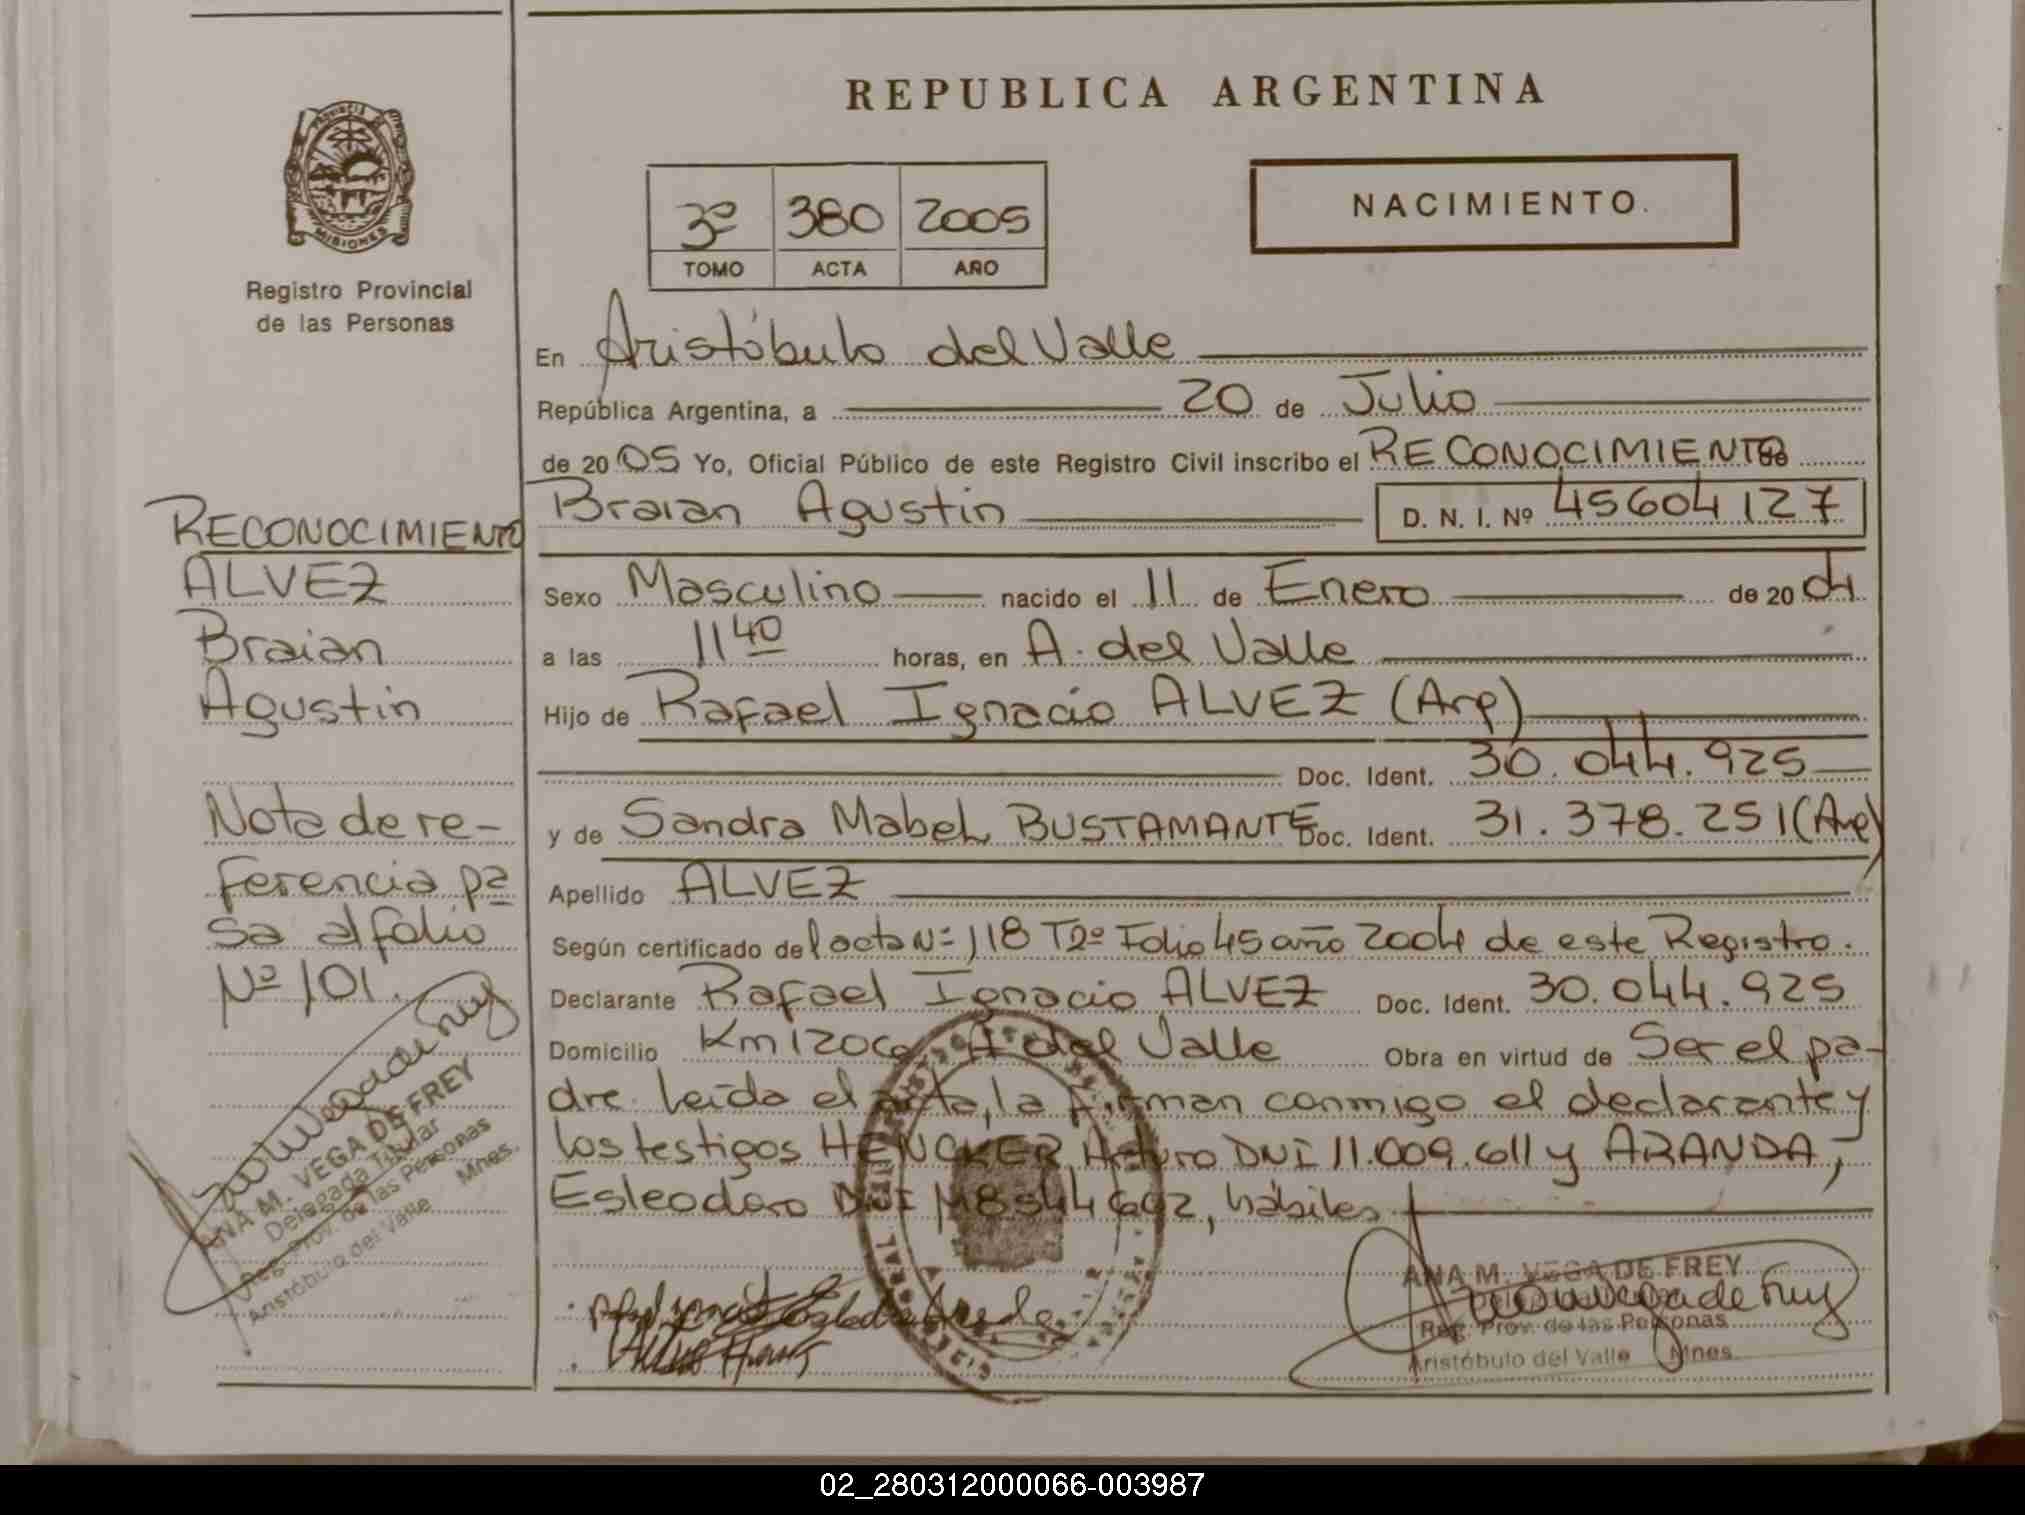 REPUBLICA ARGENTINA
PROVINCIA DE
MISIONES
Registro Provincial
de las Personas
3º 380 2005
TOMO ACTA AÑO
NACIMIENTO.
En Aristóbulo del Valle
República Argentina, a 20 de Julio
de 2005 Yo, Oficial Público de este Registro Civil inscribo el RECONOCIMIENTO de
Braian Agustin D. N. I. Nº 45604127
Sexo Masculino nacido el 11 de Enero de 2004
a las 11 40 horas, en A. del Valle
Hijo de Rafael Ignacio ALVEZ (Arg)
Doc. Ident. 30.044.925
y de Sandra Mabel BUSTAMANTE Doc. Ident. 31.378.251 (Arg)
Apellido ALVEZ
Según certificado del acta Nº 118 Tº 2º Folio 45 año 2004 de este Registro.
Declarante Rafael Ignacio ALVEZ Doc. Ident. 30.044.925
Domicilio Km 1200 A del Valle Obra en virtud de Ser el pa-
dre. Leída el acta, la firman conmigo el declarante y
los testigos HENCKER, Arturo DNI 11.009.611 y ARANDA,
Esleodoro DNI hábiles
RECONOCIMIENTO
ALVEZ
Braian
Agustin
Nota de re-
ferencia pa
sa al folio
Nº 101.
ANA M. VEGA DE FREY
Delegada Titular
Reg. Prov. de las Personas
Aristóbulo del Valle Mnes.
ANA M. VEGA DE FREY
Reg. Prov. de las Personas
Aristóbulo del Valle Mnes.
02_280312000066-003987